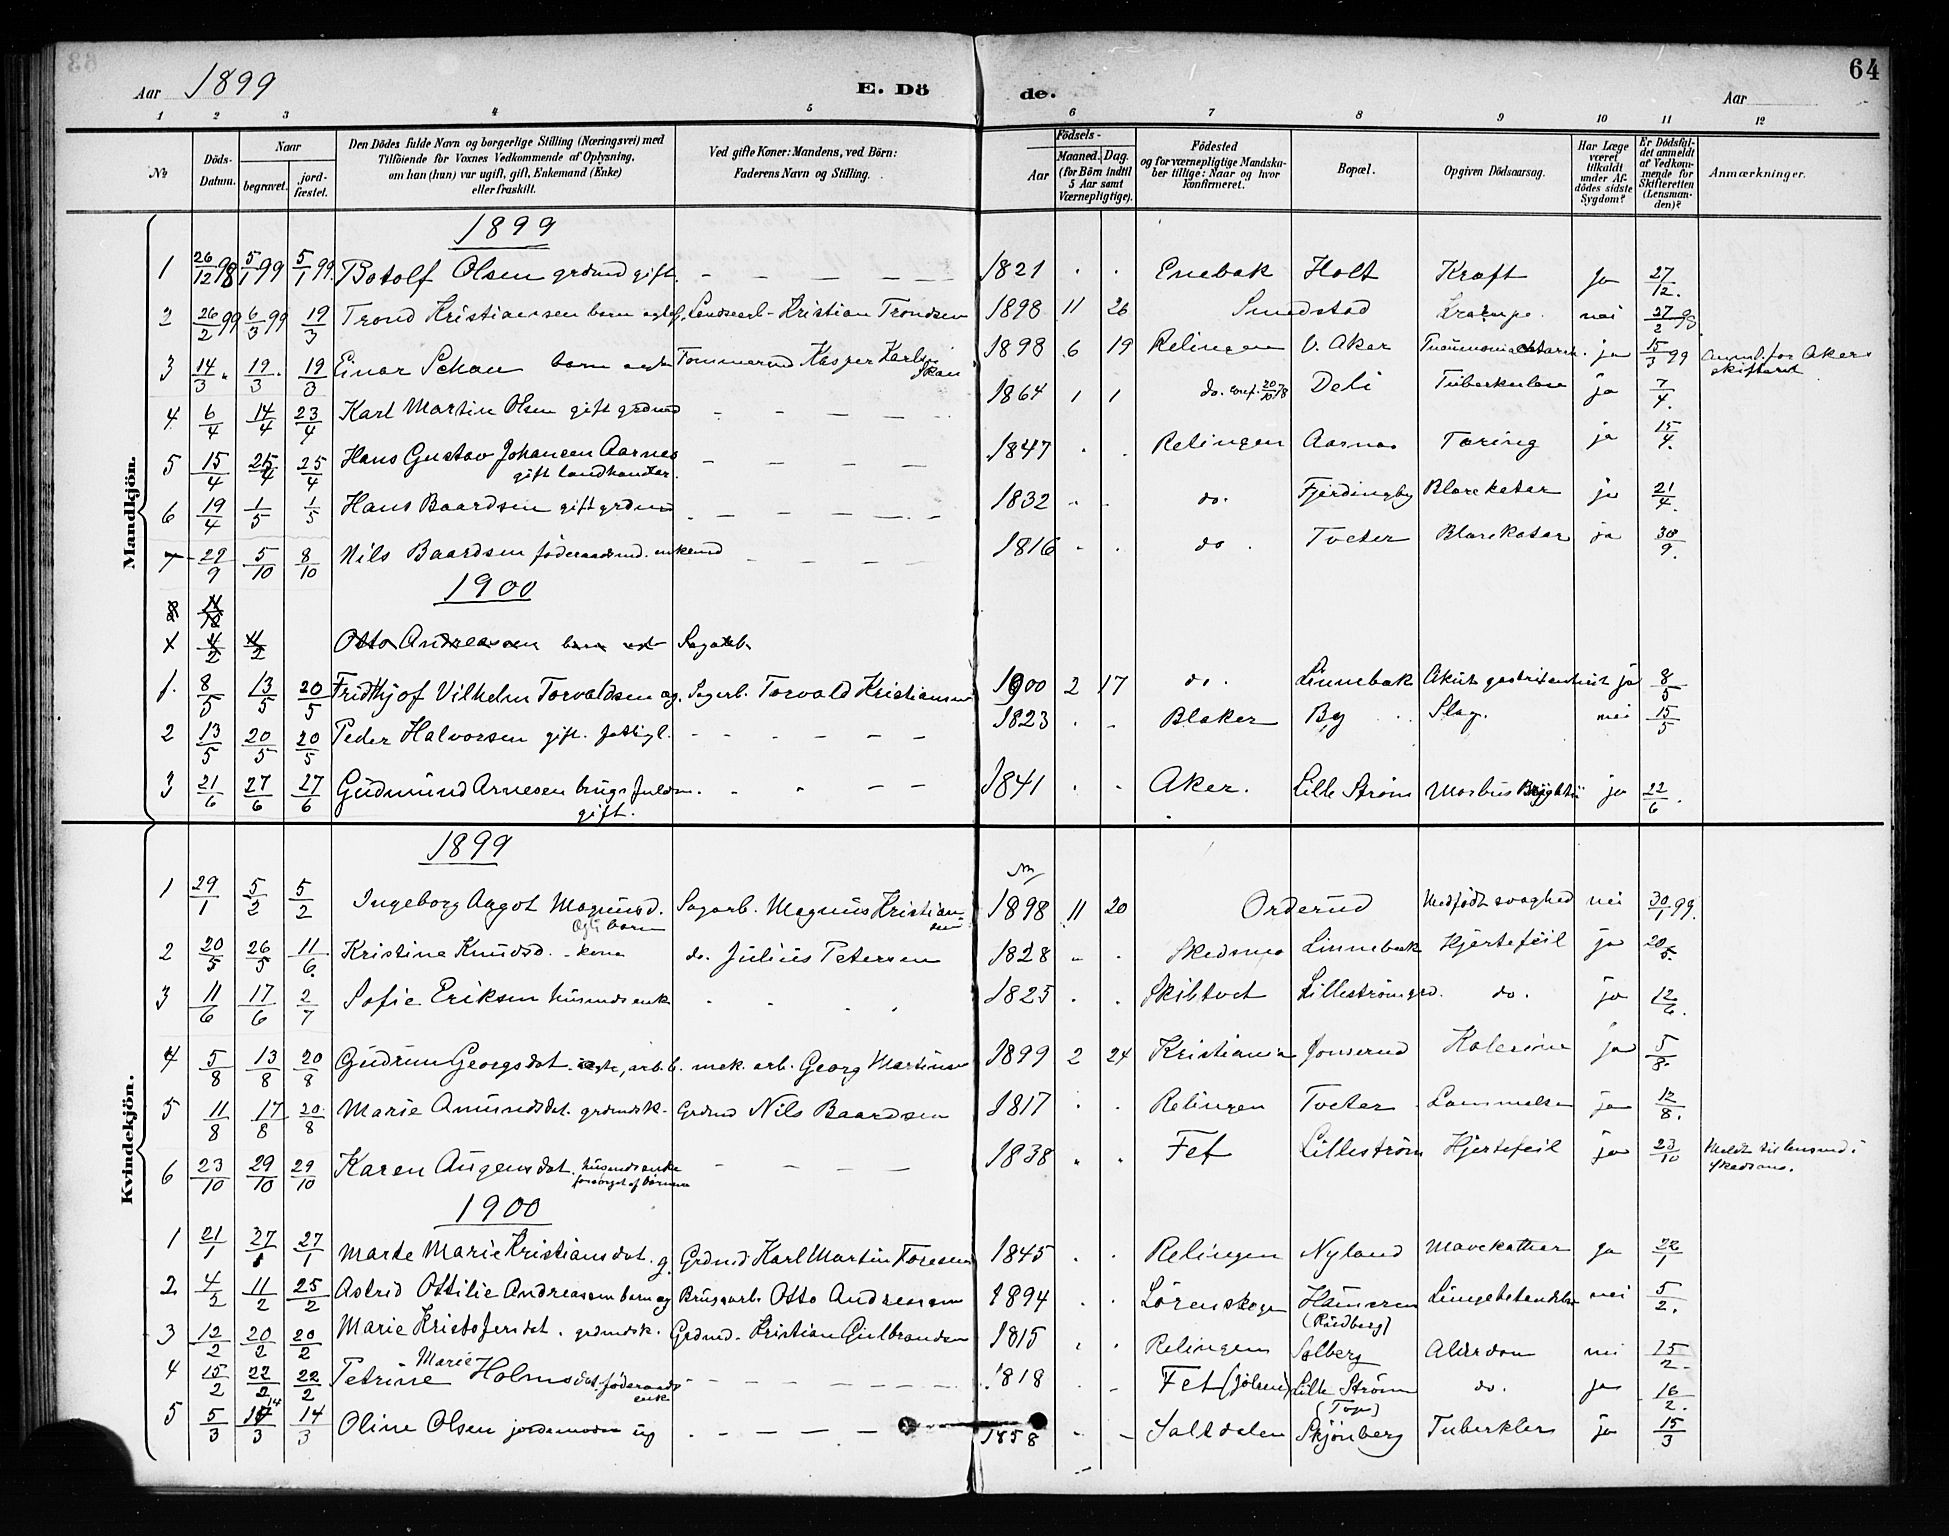 64
Aar 1899 E. Dö de. Aar
1 2 3 4 5 6 7 8 9 10 11 12
№ Döds-Datum. Naar begravet. jord-fæstet. Den Dödes fulde Navn og borgerlige Stilling (Næringsvei) med Tilföiende for Voxnes Vedkommende af Oplysning, om han (hun) var ugift, gift, Enkemand (Enke) eller fraskilt. Ved gifte Koner: Mandens, ved Börn: Faderens Navn og Stilling. Födsels- Aar Maaned. Dag. (for Börn indtil 5 Aar samt Værnepligtige). Födested og for værnepligtige Mandskaber tillige: Naar og hvor konfirmeret. Bopæl. Opgiven Dödsaarsag. Har Læge været tilkaldt under Afdödes sidste Sygdom? Er Dödsfaldet anmeldt af Vedkommende for Skifteretten (Lensmanden)? Anmærkninger.
Mandkjön.
1899
1 26/12 98 5/1 99 5/1 99. Botolf Olsen grdmd gift. 1821 Enebak Holt Kræft ja 27/12.
2 26/2 99 6/3 99 19/3 Trond Kristiansen barn Kristian Trondsen 1898 11 26 Smedstad Krampe. nei 27/2 98.
3 14/3 19/3 19/3 Einar Schau barn Tømmermd Kasper Karlsen Skau 1898 6 19 Relingen V. Aker ja 15/3 99 Anml. for Akers skifteret
4 6/4 14/4 23/4 Karl Martin Olsen gift grdmd 1864 1 1 do. conf. 20/10 78 Deli Tuberkulose ja 7/4.
5 15/4 25/4 25/4 Hans Gustav Johansen Aarnes gift landhandler. 1847 Relingen Aarnes Tæring ja 15/4.
6 19/4 1/5 1/5 Hans Baardsen gift grdmd 1832 do. Fjerdingby Blærekatar ja 21/4.
7 29/9 5/10 8/10 Nils Baardsen føderaadsmd. enkemd 1816 do. Tveter Blærekatar ja 30/9.
1900
8
4/2 4/2 Otto Andreassen barn Sagarb.
1. 8/5 13/5 20/5 Fridthjof Vilhelm Torvaldsen æg. Sagarb. Torvald Kristiansen 1900 2 17 do. Linnebak Akut ja 8/5
2 13/5 20/5 20/5 Peder Halvorsen gift. fattigl. 1823 Blaker By Slag. nei 15/5
3 21/6 27/6 27/6 Gudmund Arnesen brugsfuldm. gift. 1841 Aker. Lille Strøm Morbus Brightii ja 22/6.
Kvindekjön.
1899
1 29/1 5/2 5/2 Ingeborg Aagot Magnusd. barn Sagarb. Magnus Kristiansen 1898 11 20 Orderud Medfødt svaghed nei 30/1 99.
2 20/5 26/5 11/6. Kristine Knudsd. kone do. Julius Petersen 1828 Skedsmo Linnebak Hjertefeil ja 20/5.
3 11/6 17/6 2/7 Sofie Eriksen husmdsenk 1825 Skibtvet Lillestrøm do. ja 12/6.
4 5/8 13/8 20/8 Gudrun Georgsdat. ægte, arb. b. mek. arb. Georg Martinsen 1899 2 24 Kristiania Jonserud Kolerine ja 5/8.
5 11/8 17/8 20/8 Marie Amundsdat. grdmdsk. Grdmd Nils Baardsen 1817 Relingen Tveter Lammelse ja 12/8.
6 23/10 29/10 29/10 Karen Augensdat. husmdsenke forsørget af børnene 1838 Fet Lillestrøm Hjertefeil ja 23/10 Meldt til lensmd i Skedsmo.
1900
1 21/1 27/1 27/1 Marte Marie Kristiansdat. g. Grdmd. Karl Martin Toresen 1845 Relingen Nyland Mavekathar ja 22/1
2 4/2 11/2 25/2 Astrid Ottilie Andreassen barn æg Brugsarb. Otto Andreassen 1894 Lørenskogen Hammeren (Rudberg) Lungebetændelse nei 5/2.
3 12/2 20/2 20/2 Marie Kristofersdat. grdmdsk. Grdmd. Kristian Gulbrandsen 1815 Relingen Solberg Alderdom nei 15/2.
4 15/2 22/2 22/2 Petrine Marie Holmsdat. føderaadsenk 1818 Fet (Jølsen) Lille Strøm (Torp) do. ja 16/2.
5 5/3 14/3 14/3 Oline Olsen jordemoder ug 1858 Saltdalen Skjønberg Tuberkler ja 15/3